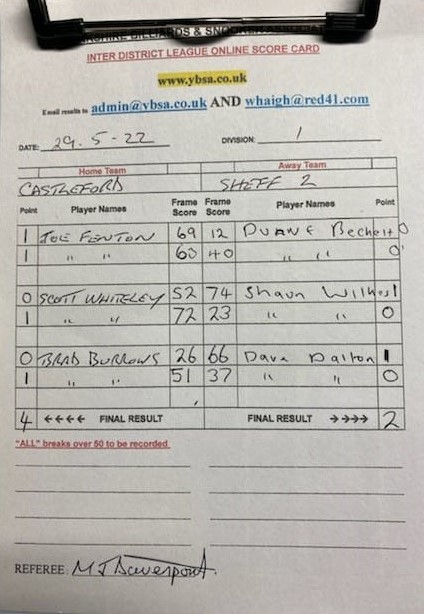 BILLIARDS & SNOOKER
INTER DISTRICT LEAGUE ONLINE SCORE CARD
www.ybsa.co.uk
Email results to admin@ybsa.co.uk AND whaigh@red41.com
DATE: 29.5-22 DIVISION: 1
Home Team Away Team
CASTLEFORD SHEFF 2
Point Player Names Frame Score Frame Score Player Names Point
1 JOE FENTON 69 12 DUANE 0
1 " " 60 40 " " 0
0 SCOTT WHITELEY 52 74 Shaun 1
1 " " 72 23 " " 0
0 BRAD BURROWS 26 66 Dave Dalton 1
1 " " 51 37 " " 0
4 ←←←← FINAL RESULT FINAL RESULT →→→→ 2
"ALL" breaks over 50 to be recorded
REFEREE: M J Davenport.